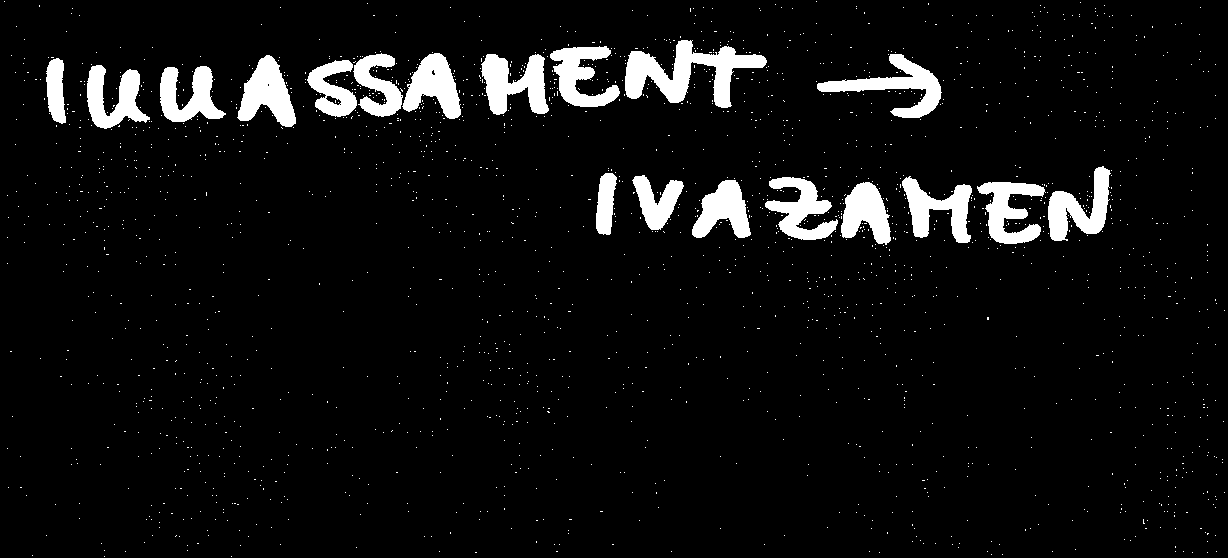 IUUASSAMENT →
IVAZAMEN